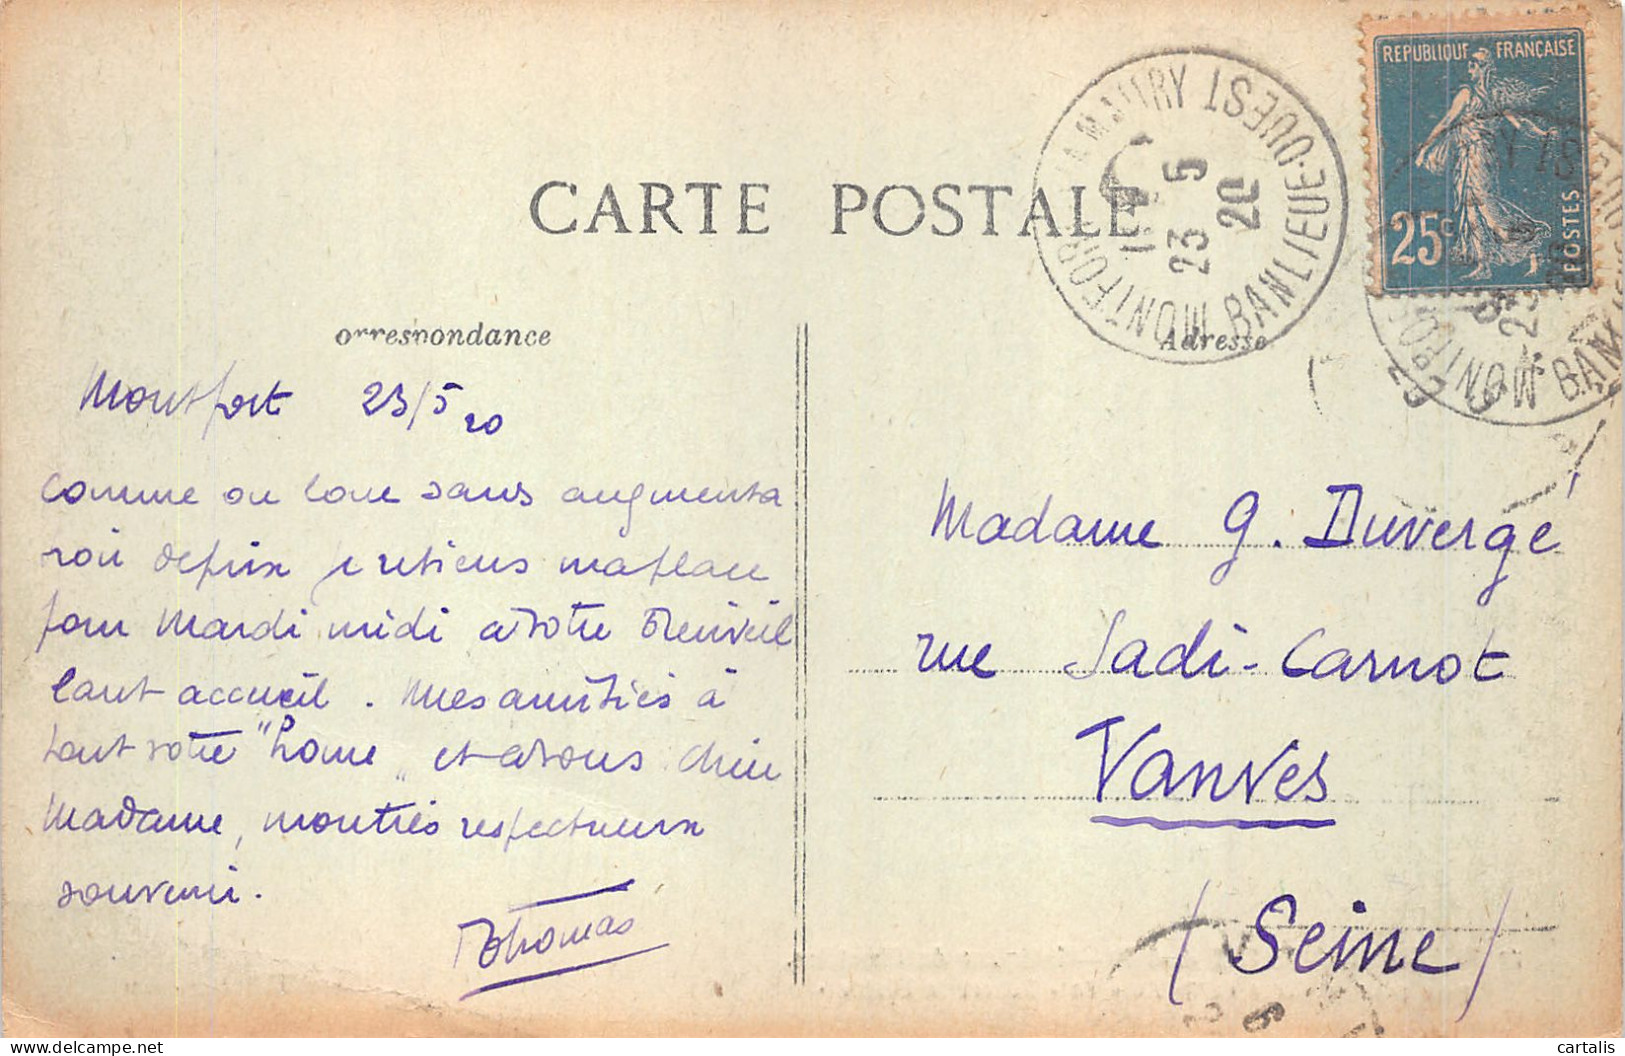 CARTE POSTALE
REPUBLIQUE FRANÇAISE
25c
POSTES
MONTFORT L'AMAURY
BANLIEUE-OUEST
23 5
20
orrespondance
Adresse
Montfort 23/5 20
Comme on loue sans augmenta
tion de prix je retiens ma place
pour Mardi midi à votre bienveil
lant accueil. Mes amitiés à
tout votre "home" et à vous chère
Madame, mon très respectueux
souvenir.
Thomas
Madame G. Duvergé
rue Sadi-Carnot
Vanves
(Seine)
cartalis